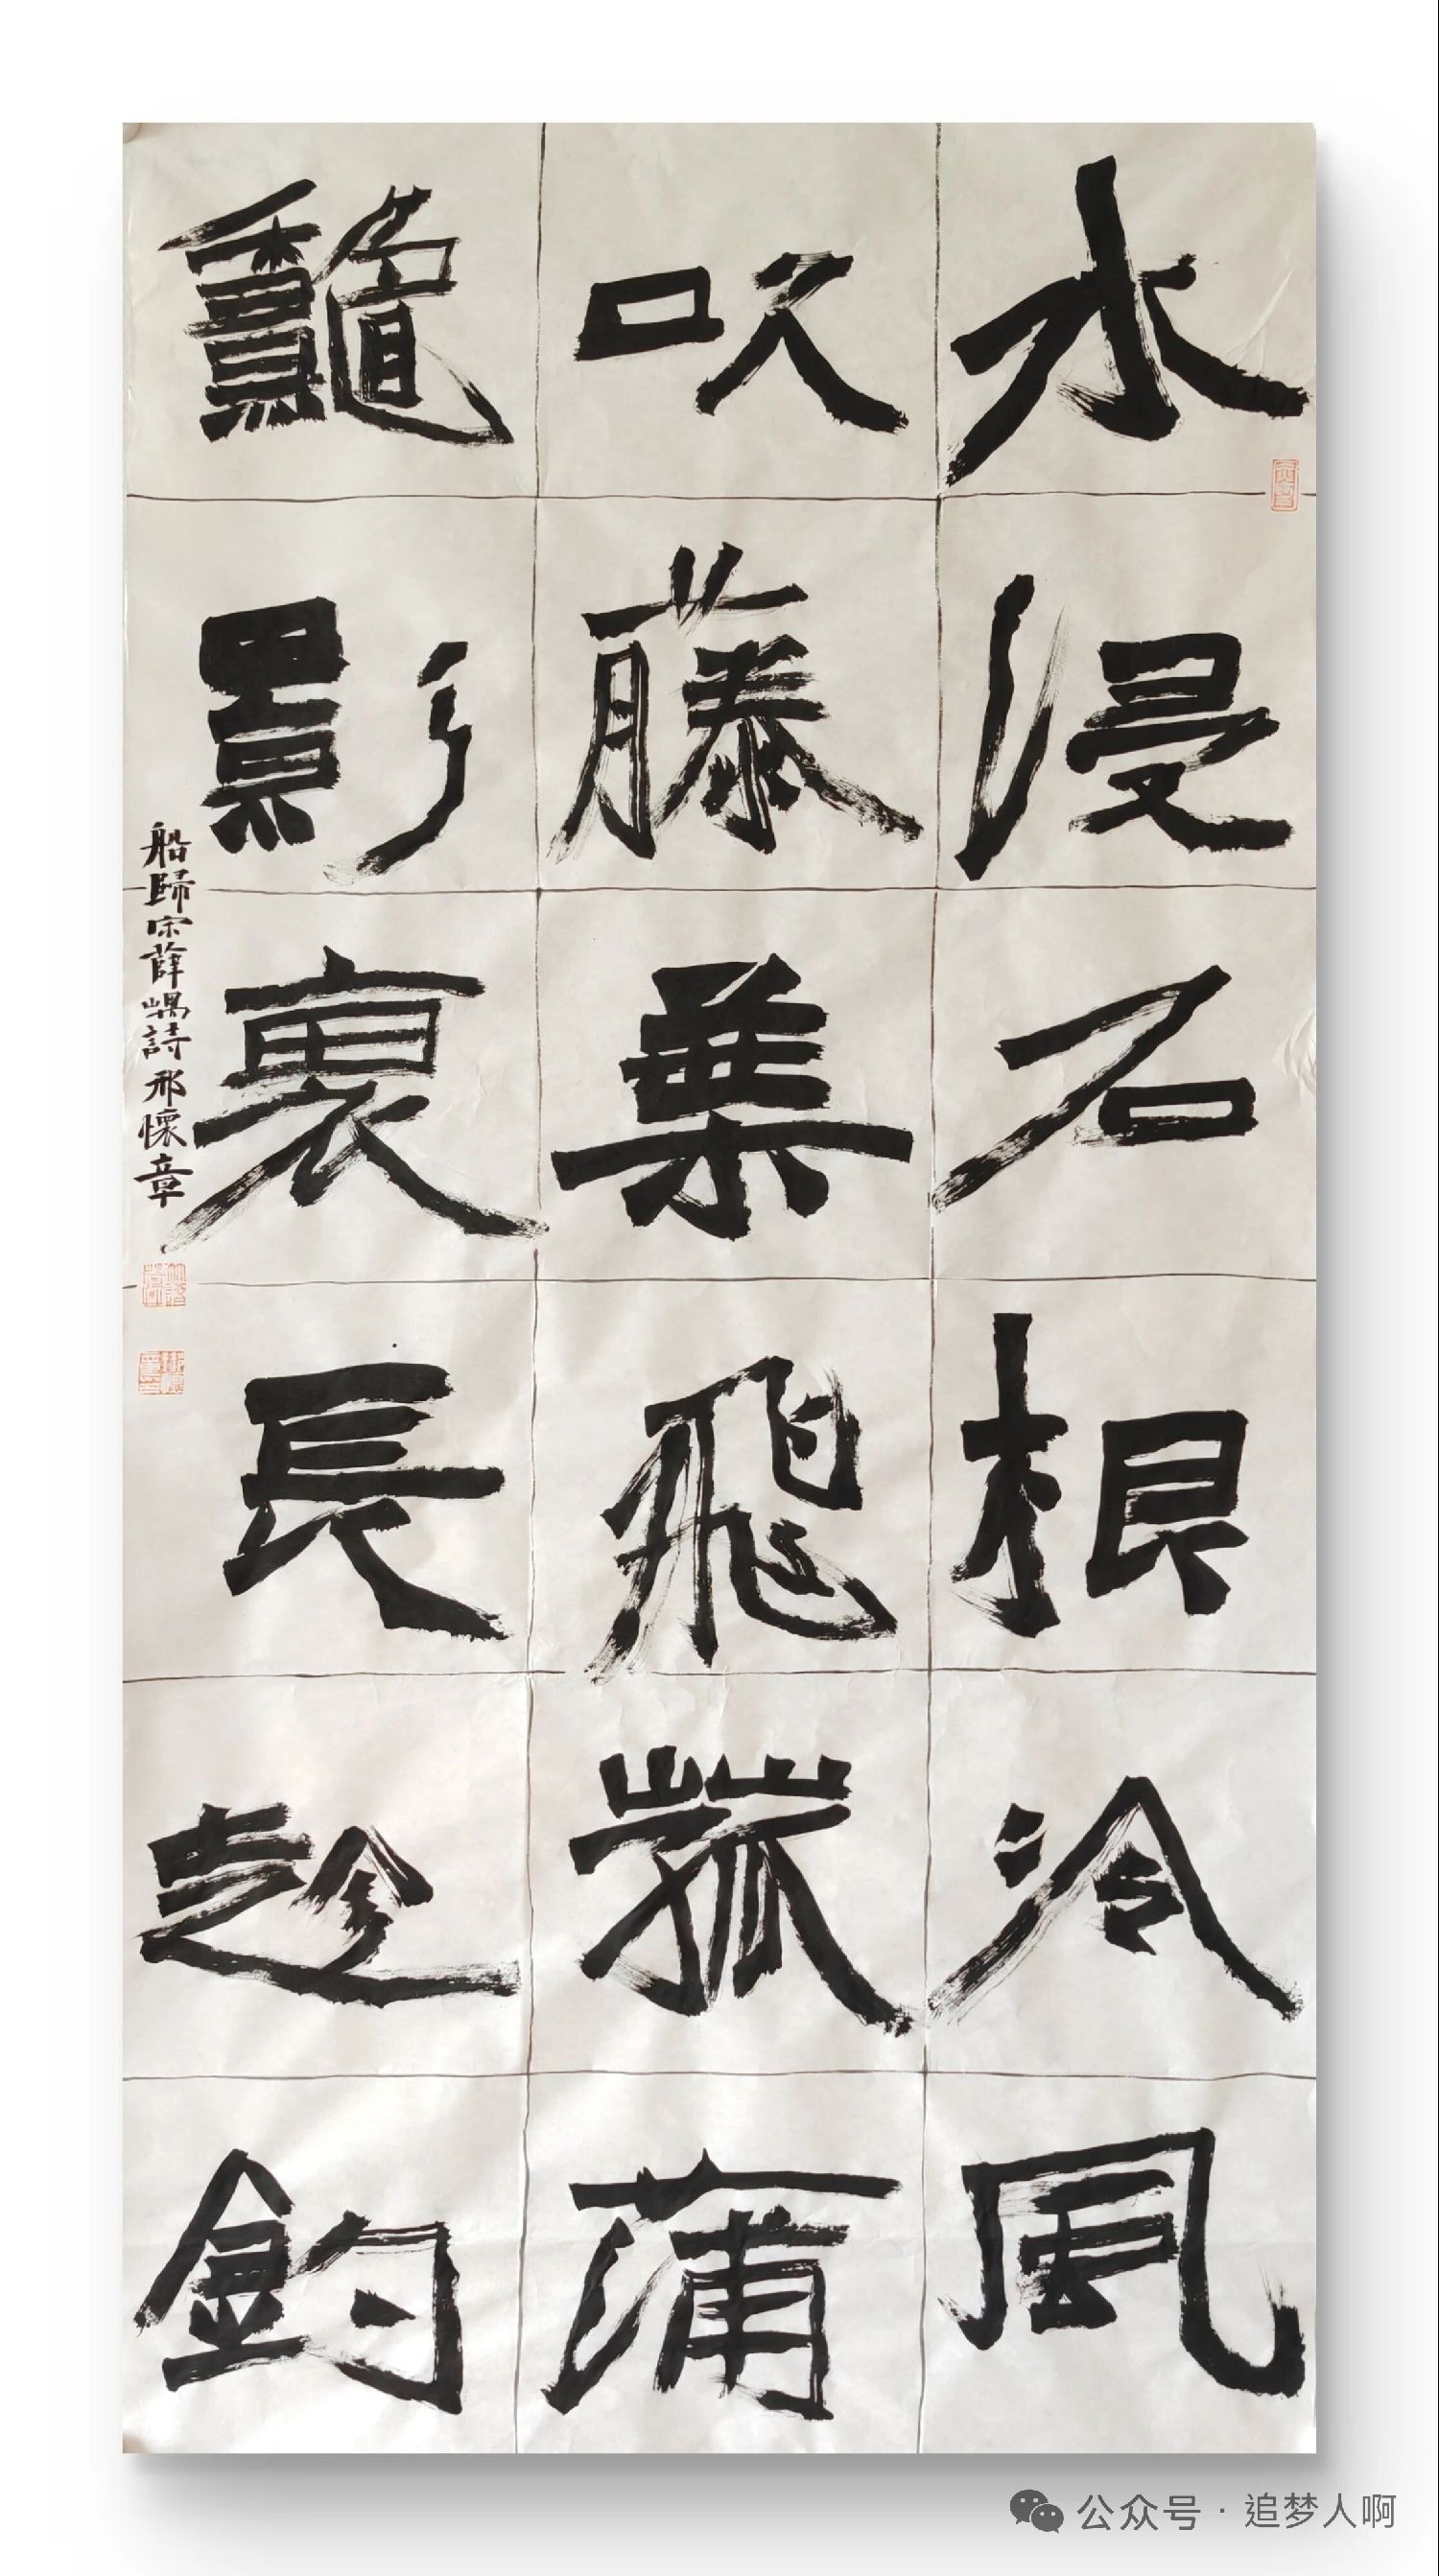 水浸石根冷風
吹藤葉飛菰蒲
龝影裏長趁釣
船歸宋薛嵎詩邢懷章
公众号·追梦人啊